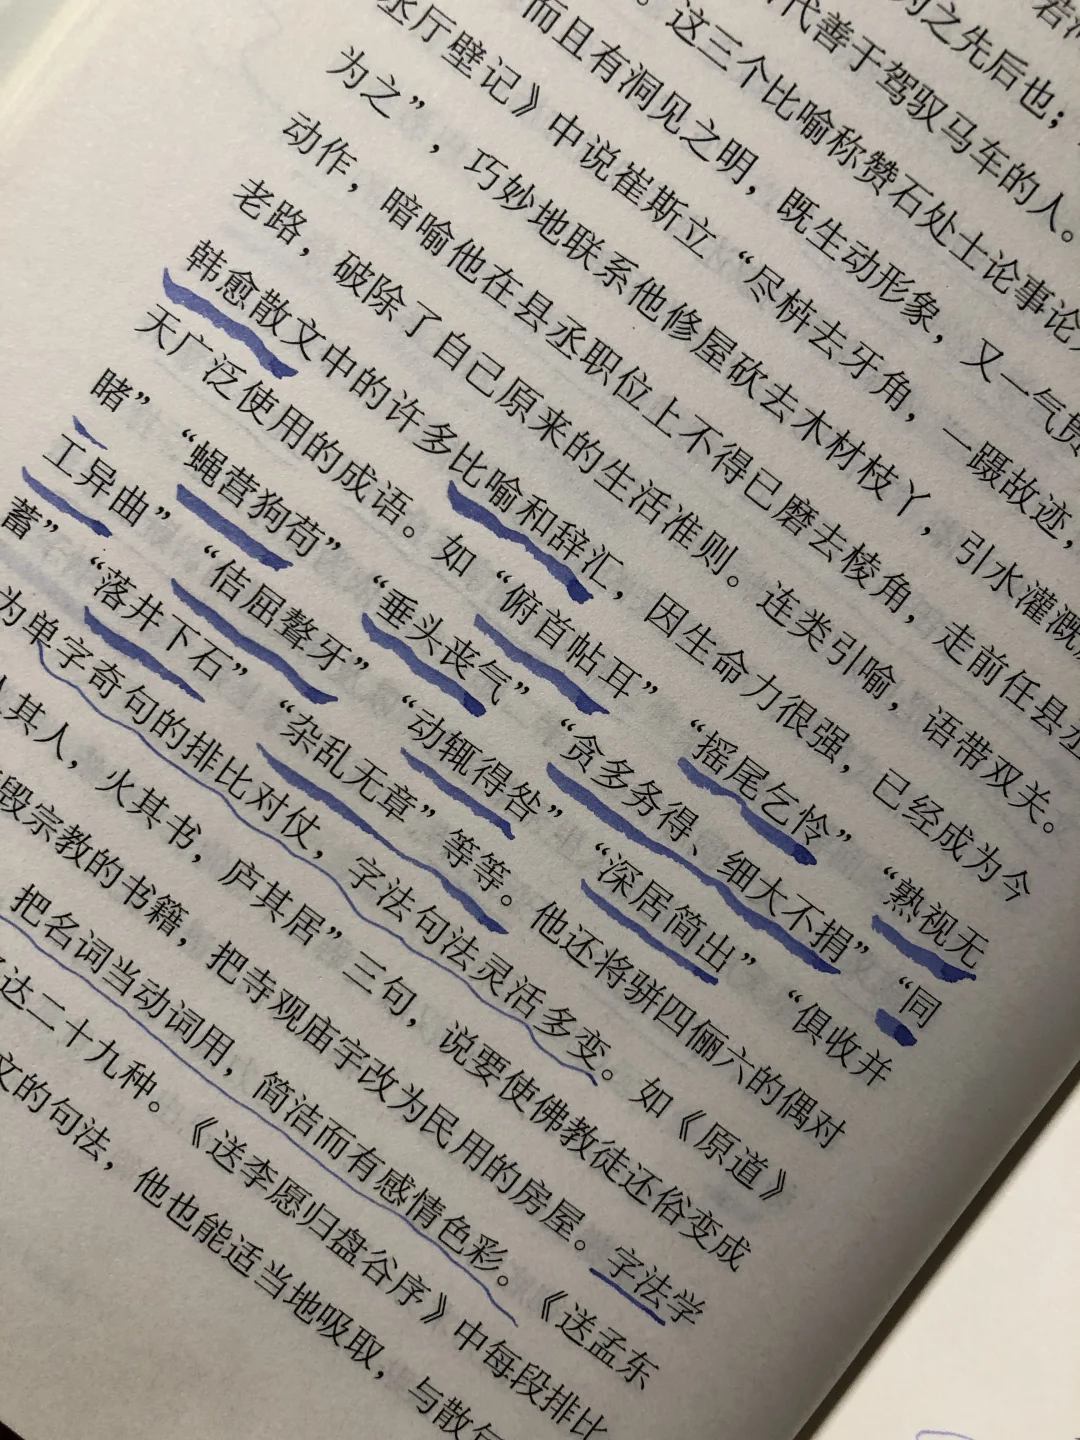 之先后也；
代善于驾驭马车的人。
。这三个比喻称赞石处士论事论
而且有洞见之明，既生动形象，又一气贯
丞厅壁记》中说崔斯立“尽枿去牙角，一蹑故迹，
为之”，巧妙地联系他修屋砍去木材枝丫，引水灌溉
动作，暗喻他在县丞职位上不得已磨去棱角，走前任县丞
老路，破除了自己原来的生活准则。连类引喻，语带双关。
韩愈散文中的许多比喻和辞汇，因生命力很强，已经成为今
天广泛使用的成语。如“俯首帖耳”“摇尾乞怜”“熟视无
睹”“蝇营狗苟”“垂头丧气”“贪多务得、细大不捐”“同
工异曲”“佶屈聱牙”“动辄得咎”“深居简出”“俱收并
蓄”“落井下石”“杂乱无章”等等。他还将骈四俪六的偶对
为单字奇句的排比对仗，字法句法灵活多变。如《原道》
其人，火其书，庐其居”三句，说要使佛教徒还俗变成
毁宗教的书籍，把寺观庙宇改为民用的房屋。字法学
把名词当动词用，简洁而有感情色彩。《送孟东
达二十九种。《送李愿归盘谷序》中每段排比
文的句法，他也能适当地吸取，与散